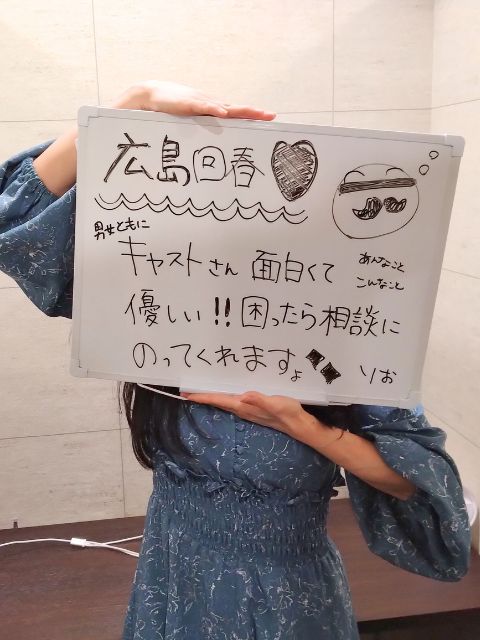 広島回春
男女ともに
キャストさん 面白くて
優しい!! 困ったら相談に
のってくれますょ
あんなこと
こんなこと
りお